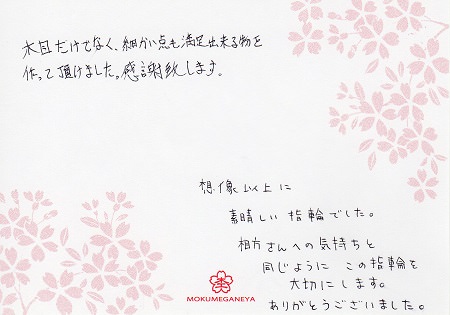 木目だけでなく、細かい点も満足出来る物を
作って頂けました。感謝致します。
想像以上に
素晴しい指輪でした。
相方さんへの気持ちと
同じように この指輪を
大切にします。
ありがとうございました。
MOKUMEGANEYA